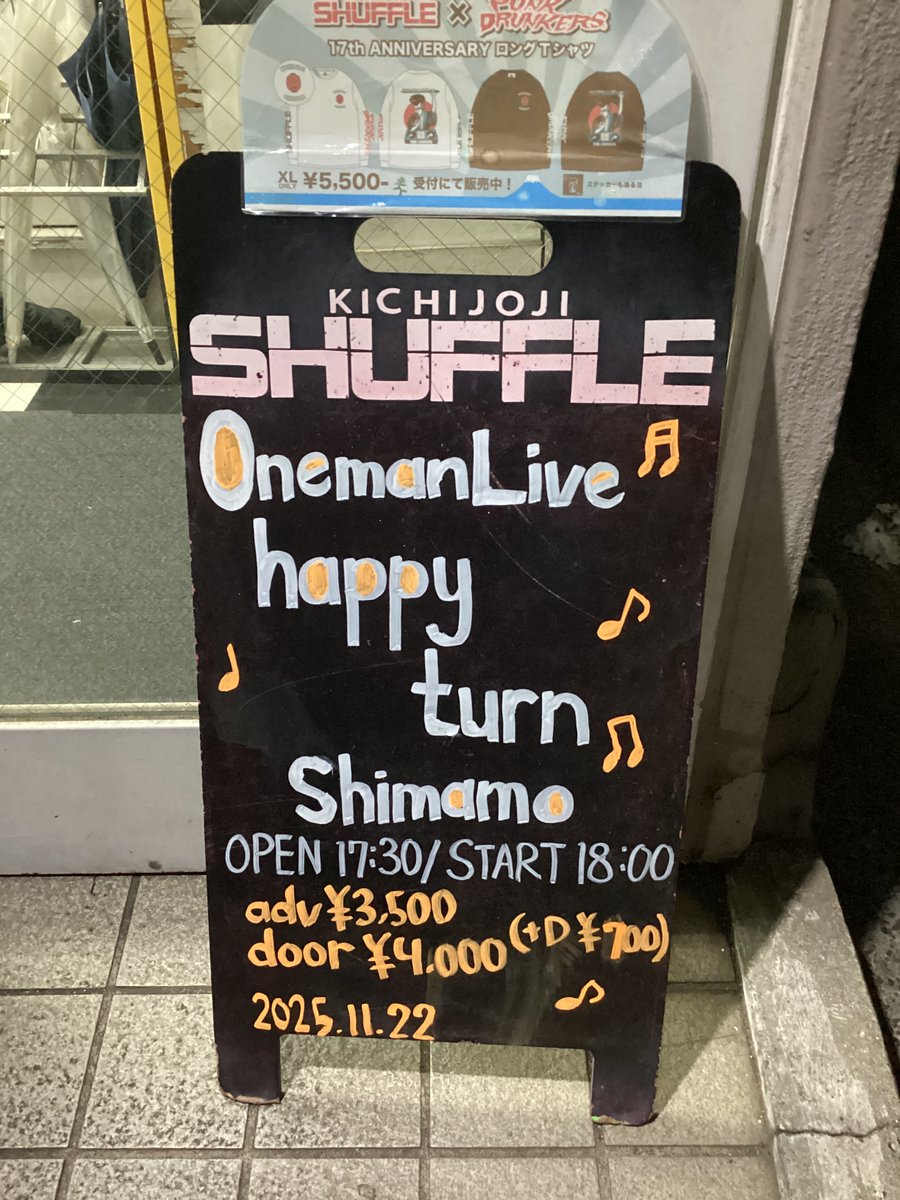 SHUFFLE × PUNK DRUNKERS
17th ANNIVERSARY ロングTシャツ
XL ONLY ¥5,500- 受付にて販売中! ステッカーもあるヨ
KICHIJOJI
SHUFFLE
OnemanLive
happy
turn
Shimamo
OPEN 17:30/START 18:00
adv ¥3,500
door ¥4.000 (+D ¥700)
2025.11.22